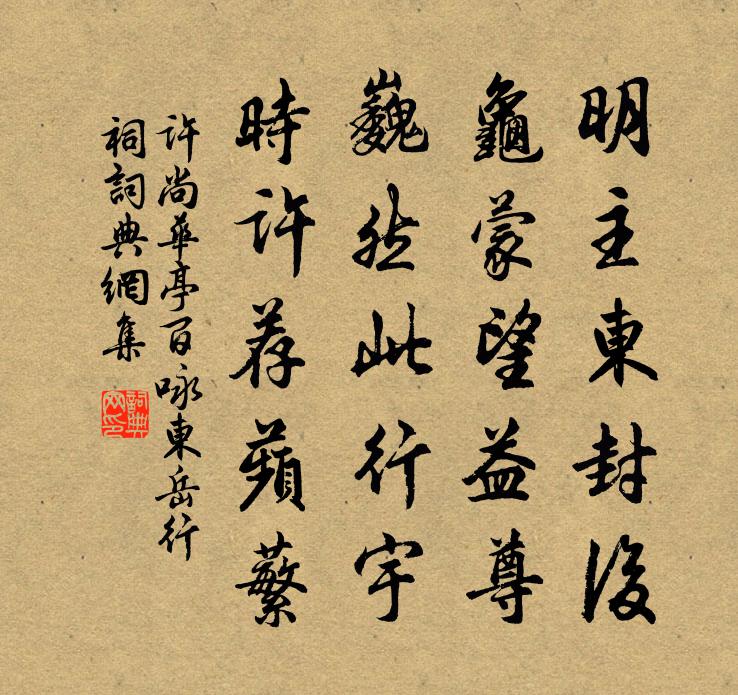 明主東封後
龜蒙望益尊
巍然此行宇
時許荐蘋蘩
許尚華亭百咏東岳行
祠詞典網集
詞典
网印